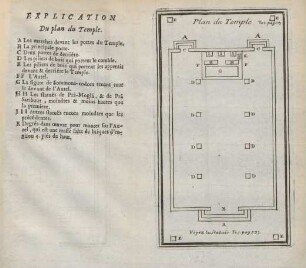 EXPLICATION
Du plan du Temple.
A Les escaliers devant les portes du Temple.
B La principale porte.
C Deux portes de derriére.
D Les piliers de bois qui portent le comble.
E Les piliers de bois qui portent les appentis
devant & derriére le Temple.
F F L'Autel.
G La figure de Sommona-codom tenant tout
le devant de l'Autel.
H H Les statuës de Prá-Mogla, & de Prá
Saribout, moindres & moins hautes que
la premiére.
I I I Autres statuës encore moindres que les
précédentes.
K Degrés dans œuvre pour monter sur l'Au-
tel, qui est une masse faite de briques d'en-
viron 4. piés de haut.
Plan du Temple
E
E
A
A
C
C
F
F
D
D
D
D
D
D
D
D
B
A
E
E